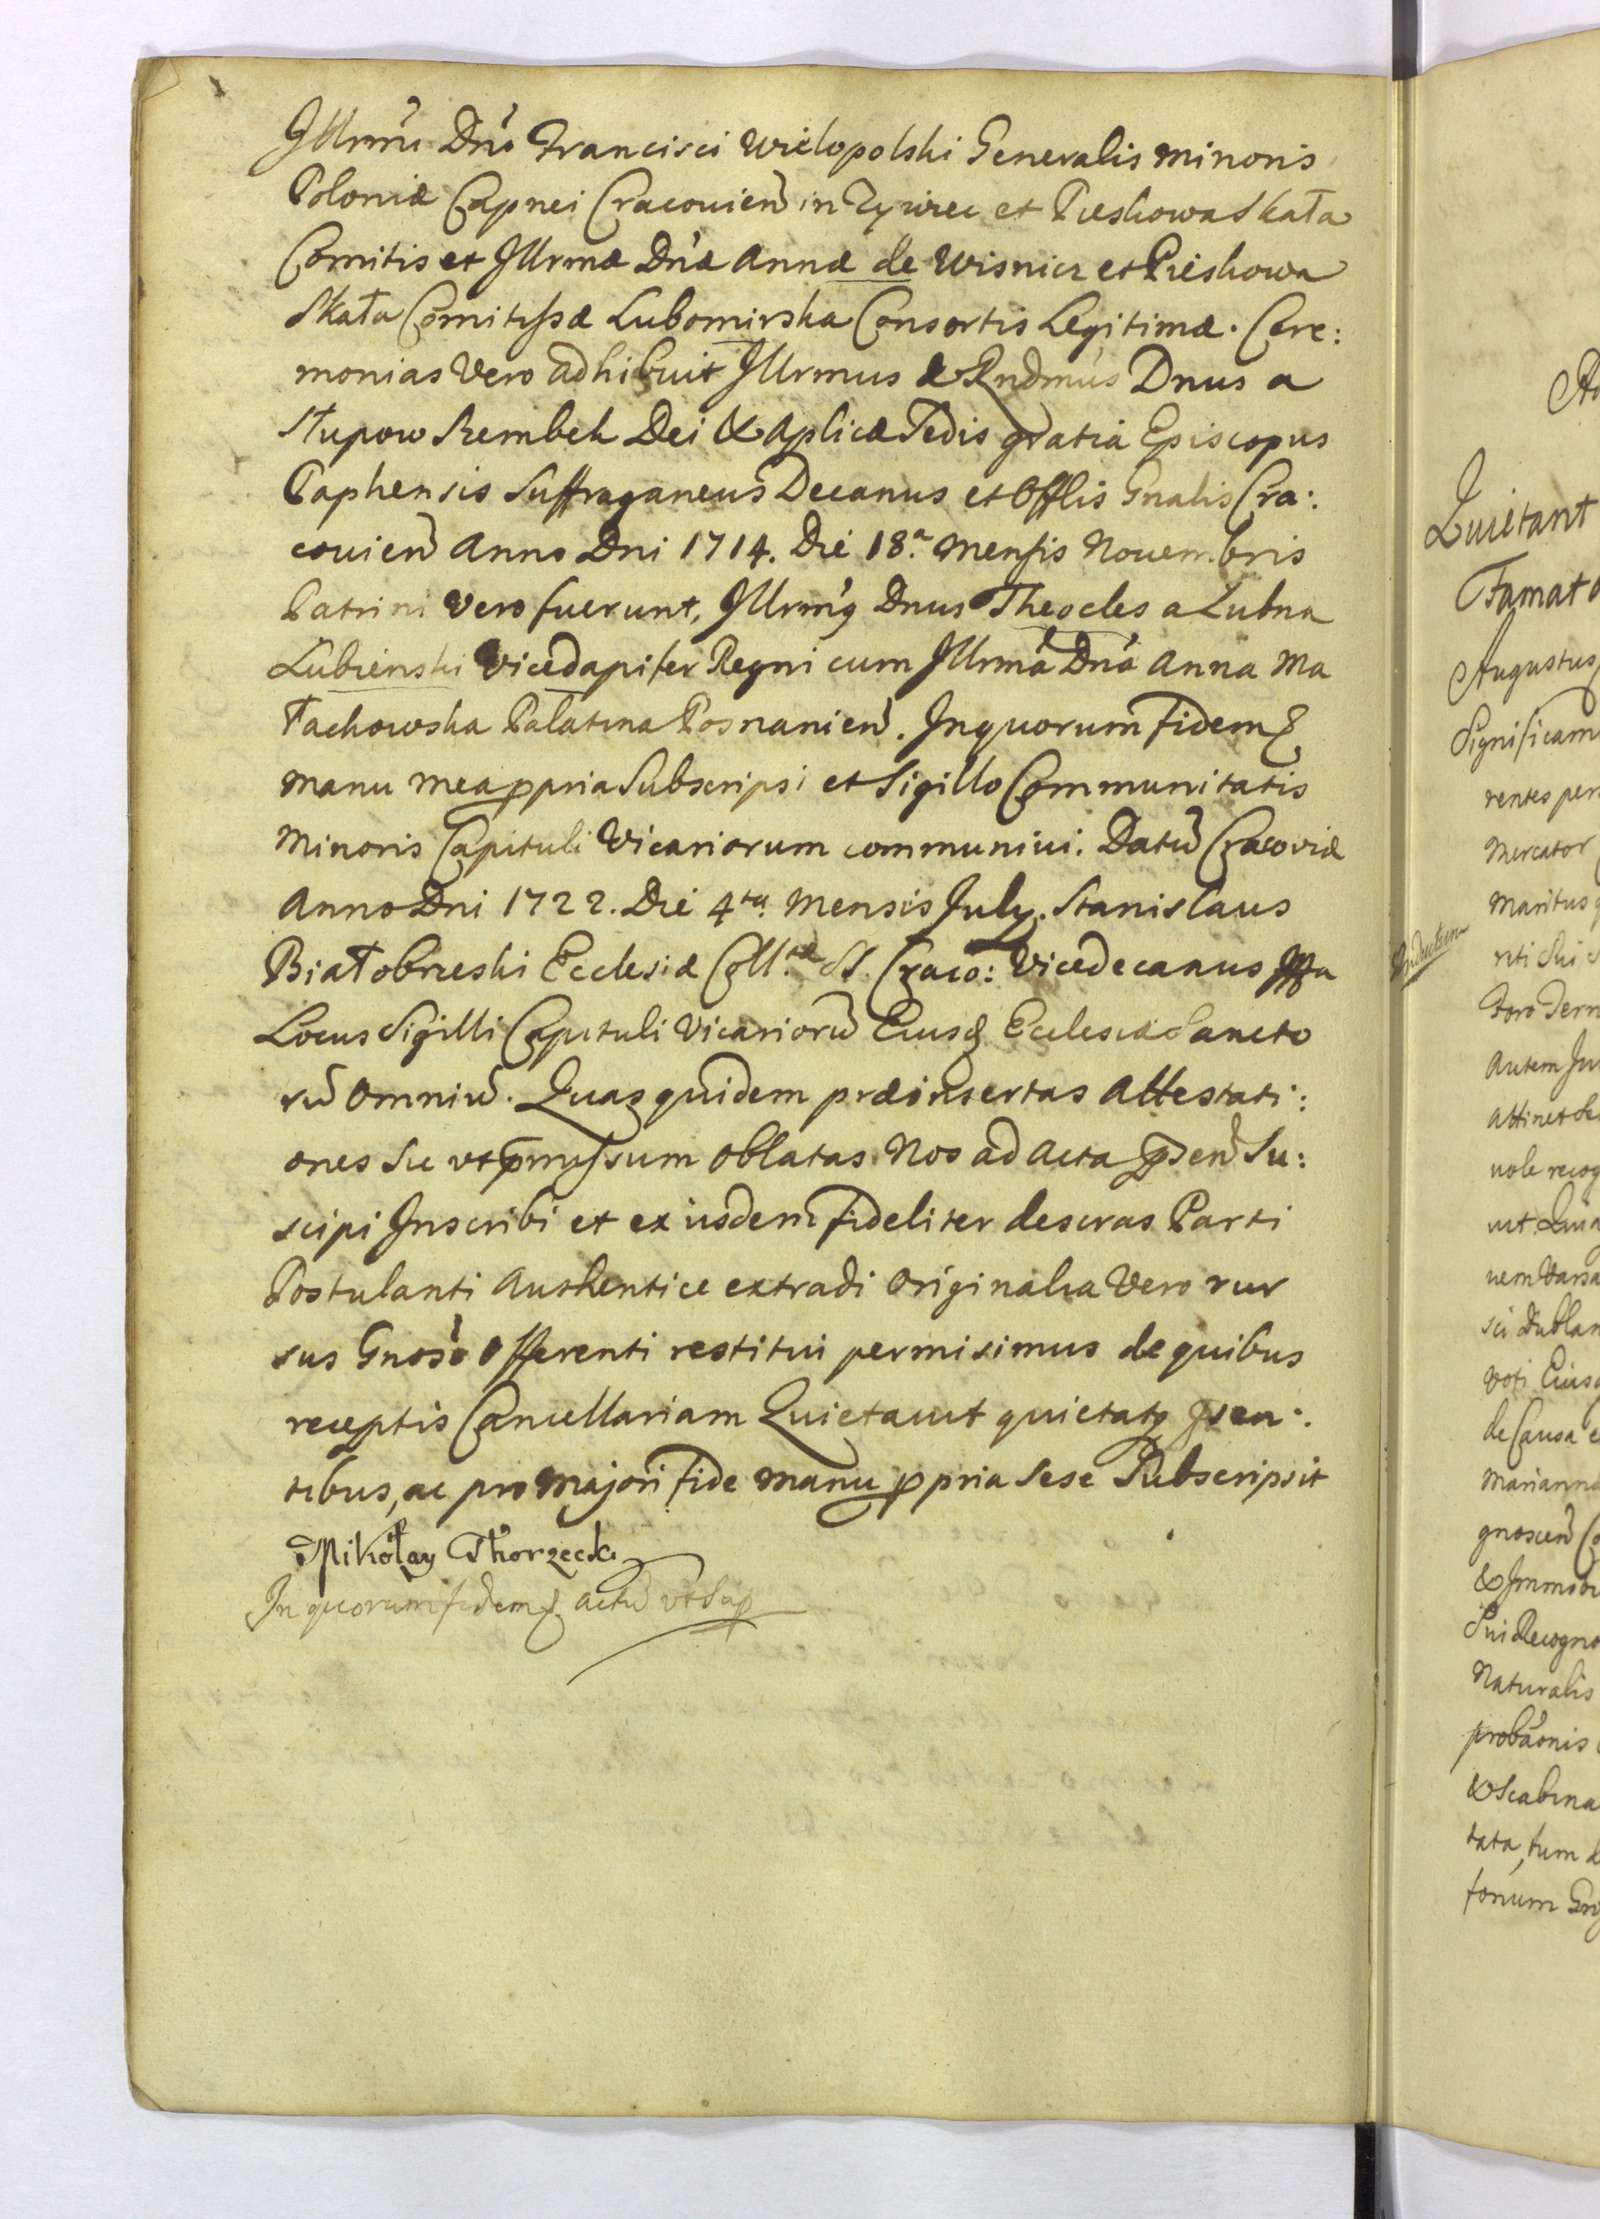 Illrmi Dni Francisci Wielopolski Generalis minoris
Poloniæ Capnei Cracouien in Zywiec et Pieskowa Skała
Comitis et Illrmæ Dnæ Annæ de Wisnicz et Pieskowa
Skała Comitissæ Lubomirska Consortis Legitimæ. Cære:
monias Vero adhibuit Illrmus & Rndmus Dnus a
Słupow Szembek Dei & Aplicæ Sedis gratia Episcopus
Paphensis Suffraganeus Decanus et Offlis Gnalis Cra:
couien Anno Dni 1714. Die 18.a Mensis Nouembris
Patrini Vero fuerunt, Illrmq Dnus Theocles a Lubna
Lubienski Vicedapifer Regni cum Illrma Dna Anna Ma
łachowska Palatina Posnanien. In quorum fidem
manu mea ppria Subscripsi et Sigillo Communitatis
Minoris Capituli Vicariorum communiui. Datu Cracoviæ
Anno Dni 1722. Die 4ta Mensis July. Stanislaus
Białobrzeski Ecclesiæ Coll.tæ SS. Craco: Vicedecanus
Locus Sigilli Capituli Vicarioru Eiusq Ecclesiæ Sancto
ru Omniu. Quas quidem præinsertas Attestati:
ones Sic vt pmissum oblatas Nos ad Acta psen Su:
scipi Inscribi et ex iisdem fideliter descras Parti
Postulanti Authentice extradi Originalia Vero rur
sus Gnoso Offerenti restitui permisimus de quibus
receptis Cancellariam Quietauit quietatq psen:
tibus, ac pro majori fide manu ppria Sese Subscripsit
Mikołay Thorzecki
In quorum fidem actu vt Sup
Inductum
Quietant
Famato
Augustus
Significam
rentes per
Mercator
Maritus
nti Sui
Foro
Autem
Attinet
nole recog
uit
sci Dublan
voti Eius
de Causa
Marianna
gnoscen
& Immobi
Sui Recogno
Naturalis
probaonis
& Scabina
tata, tum